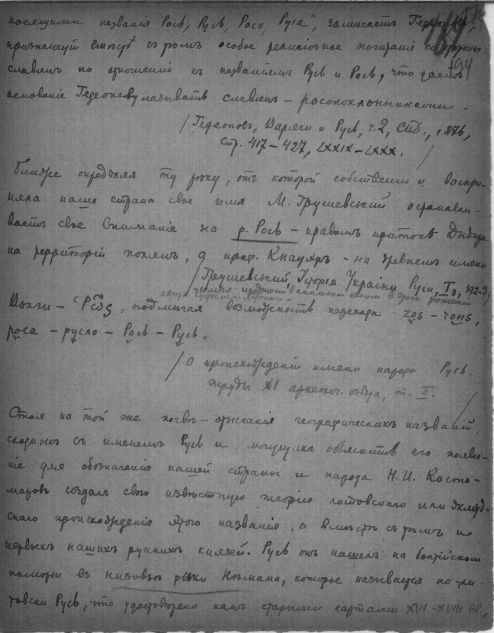 носящими названія Рось, Русь, Росо, Руса", замѣчаетъ Гедеоновъ,
признающій вмѣстѣ съ тѣмъ особое религіозное почитаніе со стороны
славянъ по отношенію къ названіямъ Русь и Рось, что даетъ
основаніе Гедеонову называть славянъ – росопоклонниками.
/Гедеоновъ, Варяги и Русь, ч. 2, Спб., 1876,
стр. 417–427, LXXIX–LXXX. /
Ближе опредѣляя ту рѣку, отъ которой собственно и воспри-
няла наша страна свое имя М. Грушевський останавли-
ваетъ свое вниманіе на р. Рось – правомъ притокѣ Днѣпра
на территоріи полянъ, а проф. Кнауэръ – на древнемъ имени
/Грушевський Історія України Руси, I, 192-3/
Волги – Ῥῶς, подмѣчая возможность перехода
роса – русло – Рось – Русь.
/О происхожденіи имени народа Русь.
Труды XI археолог. съѣзда, т. II. /
Стоя на той же почвѣ – отысканія географическихъ названій,
сходныхъ съ именемъ Русь и могущихъ объяснить его появле-
ніе для обозначенія нашей страны и народа Н. И. Косто-
маровъ создалъ свою извѣстную теорію литовскаго или жмуд-
скаго происхожденія этого названія, а вмѣстѣ съ тѣмъ и
первыхъ нашихъ русскихъ князей. Русь онъ нашелъ на балтійскомъ
поморьи въ низовьѣ рѣки Нѣмана, которое называется по-ли-
товски Русь, что удостовѣрено намъ старыми картами XVI–XVIII вв.,